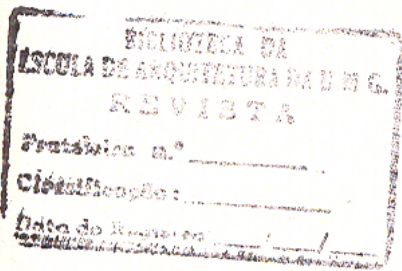 BIBLIOTECA DA
ESCOLA DE ARQUITETURA DA U M G.
REVISTA
Prateleira n.°
Classificação:
Data do Registro / /